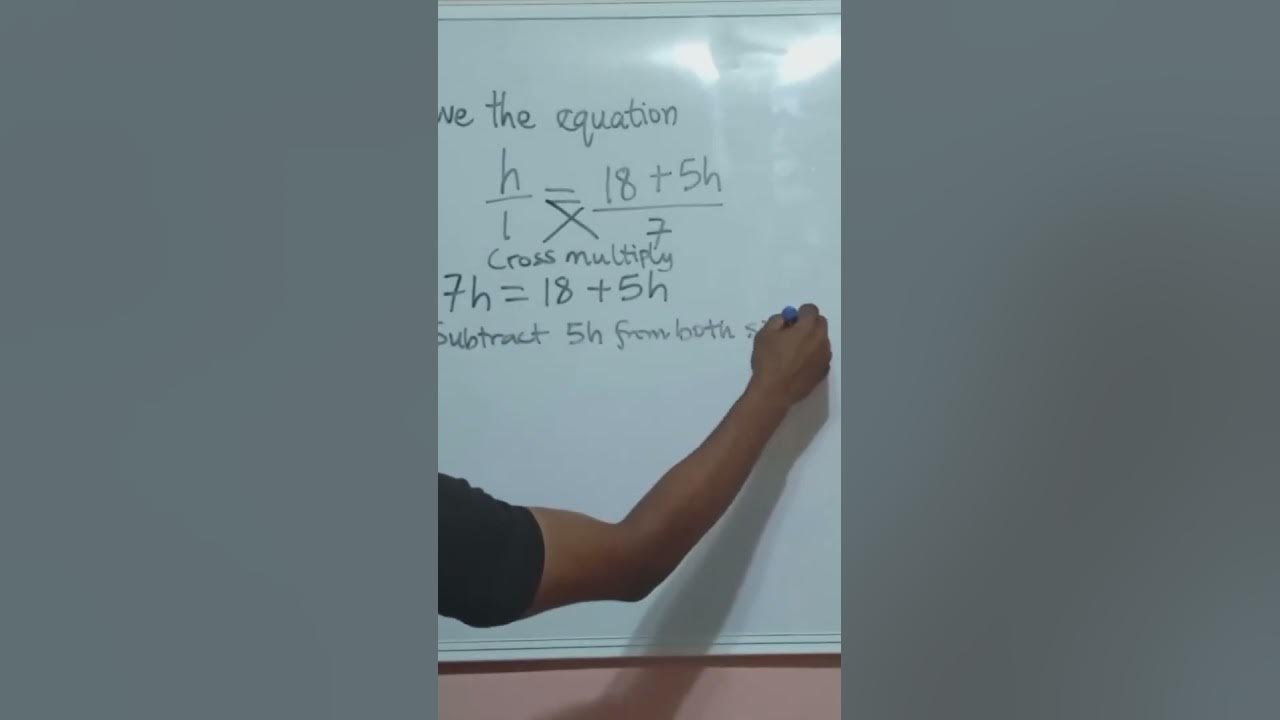 ve the equation
h/1 = (18 + 5h)/7
Cross multiply
7h = 18 + 5h
Subtract 5h from both